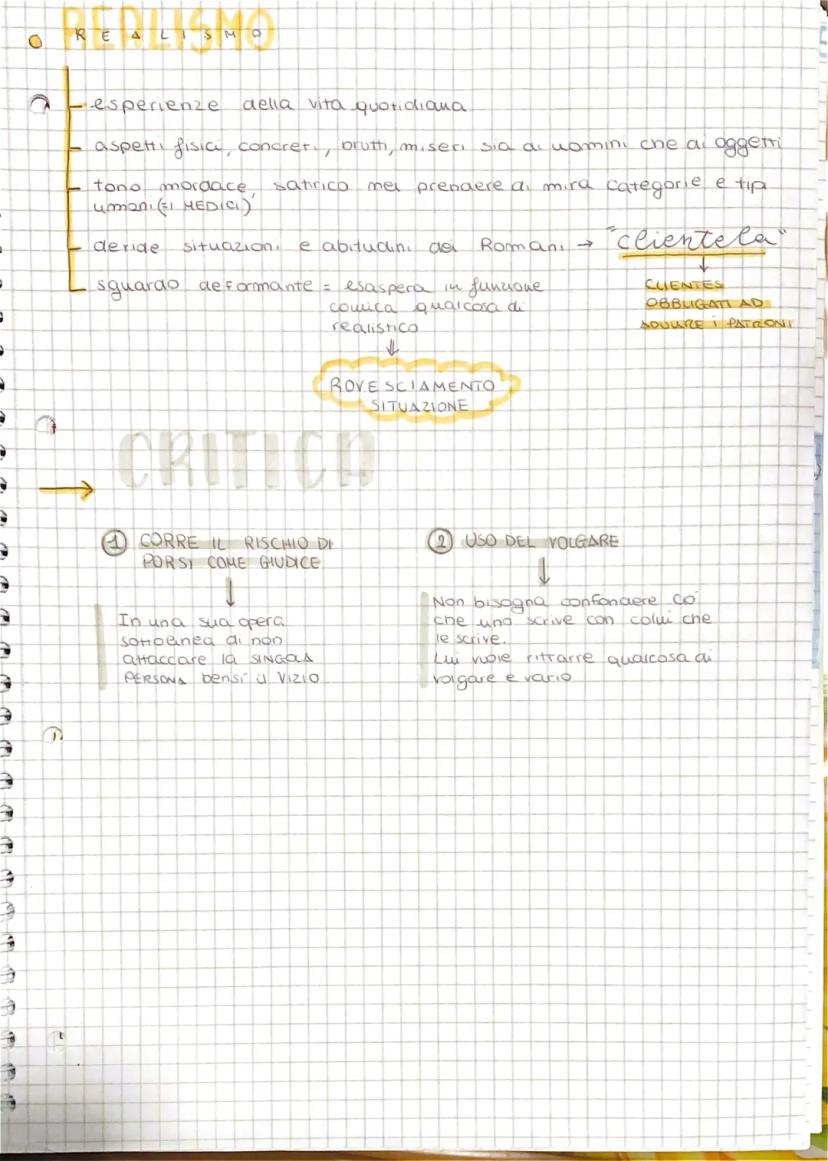 REALISMO
REALISMO
esperienze della vita quotidiana
aspetti fisici, concreti, brutti, miseri sia di uomini che di oggetti
tono mordace, satirico nel prendere di mira categorie e tipi
umani (=i MEDICI)
deride situazioni e abitudini dei Romani → "clientela"
sguardo deformante = esaspera in funzione
comica qualcosa di
realistico
CLIENTES
OBBLIGATI AD
ADULARE i PATRONI
ROVESCIAMENTO
SITUAZIONE
CRITICA
1 CORRE IL RISCHIO DI
PORSI COME GIUDICE
In una sua opera
sottolinea di non
attaccare la SINGOLA
PERSONA bensì il VIZIO
2 USO DEL VOLGARE
Non bisogna confondere ciò
che uno scrive con colui che
le scrive.
Lui vuole ritrarre qualcosa di
volgare e vario